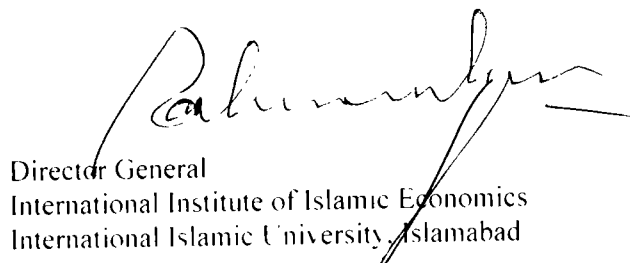 Director General
International Institute of Islamic Economics
International Islamic University, Islamabad